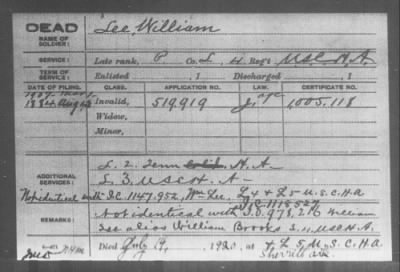 DEAD
NAME OF SOLDIER: Lee, William
SERVICE: Late rank, P. Co. L, 4 Reg't USC H.A.
TERM OF SERVICE: Enlisted , 1 Discharged , 1
DATE OF FILING. CLASS. APPLICATION NO. LAW. CERTIFICATE NO.
1884 Aug 2 Invalid, 519919 1005.118
Widow,
Minor,
ADDITIONAL SERVICES: L. 2. Tenn H. A.
L 3. USCH. A.
Not identical with I.C. 1147.952, Wm Lee, L 4 & L 5 - U.S.C.H.A
REMARKS: Not identical with I.O. 978,216 William
Lee alias William Brooks
Died July 19, 1920, at